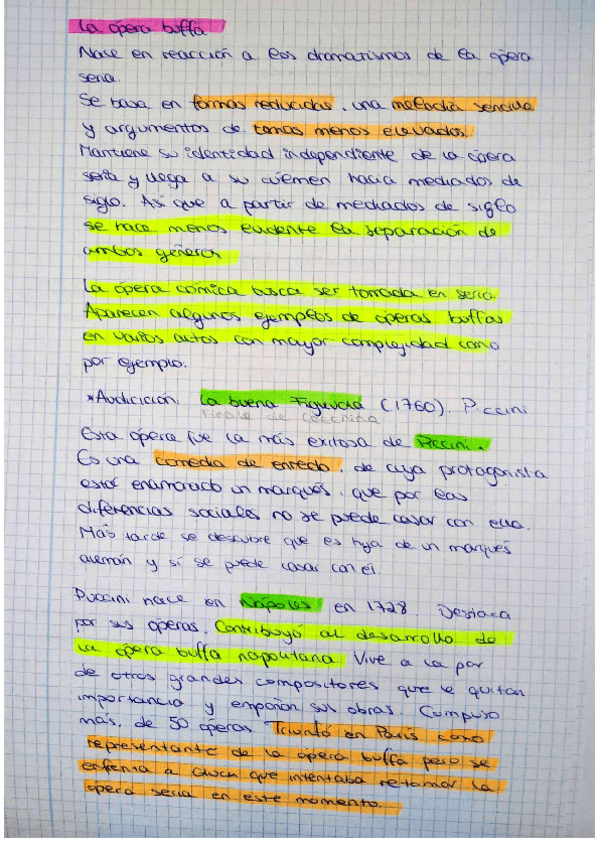 La ópera buffa
Nace en reacción a los dramatismos de la ópera
seria.
Se basa en formas reducidas, una melodía sencilla
y argumentos de temas menos elevados.
Mantiene su identidad independiente de la ópera
seria y llega a su culmen hacia mediados de
siglo. Así que a partir de mediados de siglo
se hace menos evidente la separación de
ambos géneros
La ópera cómica busca ser tomada en serio.
Aparecen algunos ejemplos de óperas buffas
en varios actos con mayor complejidad como
por ejemplo:
*Audición: La buena Figliuola (1760). Piccini
Finale de Cecchina
Esta ópera fue la más exitosa de Piccini.
Es una comedia de enredo, de cuya protagonista
está enamorado un marqués, que por las
diferencias sociales no se puede casar con ella.
Más tarde se descubre que es hija de un marqués
alemán y sí se puede casar con él.
Puccini nace en Nápoles en 1728. Destaca
por sus óperas. Contribuyó al desarrollo de
la ópera buffa napolitana. Vive a la par
de otros grandes compositores que le quitan
importancia y empañan sus obras. Compuso
más de 50 óperas. Triunfó en París como
representante de la ópera buffa pero se
enfrenta a Gluck que intentaba retomar la
ópera seria en este momento.